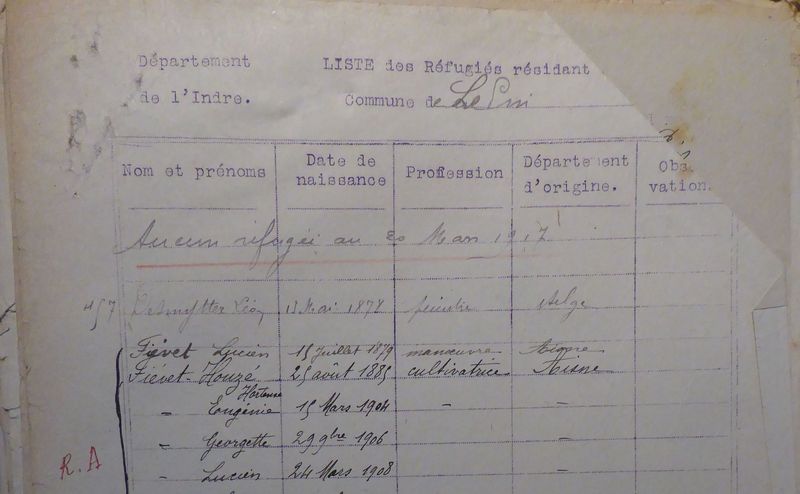 Département
de l'Indre.
LISTE des Réfugiés résidant
Commune de Le Pin
Nom et prénoms Date de naissance Profession Département d'origine. Obs. vation.
Aucun réfugié au 20 Mars 1917
457 Desmytter Léon 13 Mai 1878 peintre Belge
Fiévet Lucien 15 Juillet 1879 manœuvre Aisne
Fiévet-Houzé 25 août 1885 cultivatrice Aisne
Hortense
- Eugénie 15 Mars 1904 - -
- Georgette 29 9bre 1906 -
R.A - Lucien 24 Mars 1908 -